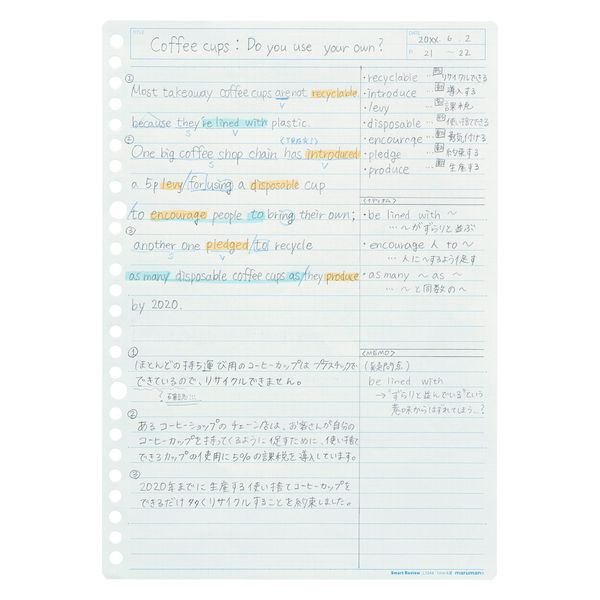 TITLE
Coffee cups : Do you use your own?
DATE
20XX. 6. 2
P. 21 ~ 22
①
Most takeaway coffee cups are not recyclable
S V
because they are lined with plastic.
S V
②
One big coffee shop chain has introduced
S V
a 5p levy / for using a disposable cup
/to encourage people to bring their own;
③
another one pledged /to/ recycle
S V
as many disposable coffee cups as / they produce
by 2020.
・recyclable … リサイクルできる
・introduce … 動 導入する
・levy … 名 課税
・disposable … 使い捨てできる
・encourage … 動 勇気付ける
・pledge … 動 約束する
・produce … 動 生産する
<イディオム>
・be lined with ~
… ~がずらりと並ぶ
・encourage 人 to ~
… 人に~するよう促す
・as many ~ as ~
… ~と同数の~
①
ほとんどの持ち運び用のコーヒーカップは プラスチックで
できているので、リサイクルできません。
?
②
ある コーヒーショップの チェーン店は、お客さんが自分の
コーヒーカップを持ってくるように 促すために、使い捨て
できるカップの使用に5%の課税を導入しています。
③
2020年までに生産する使い捨てコーヒーカップを
できるだけ多くリサイクルすることを約束しました。
<MEMO>
(疑問点)
be lined with
→"ずらりと並んでいる"という
意味からはずれてしまう…?
Smart Review
maruman